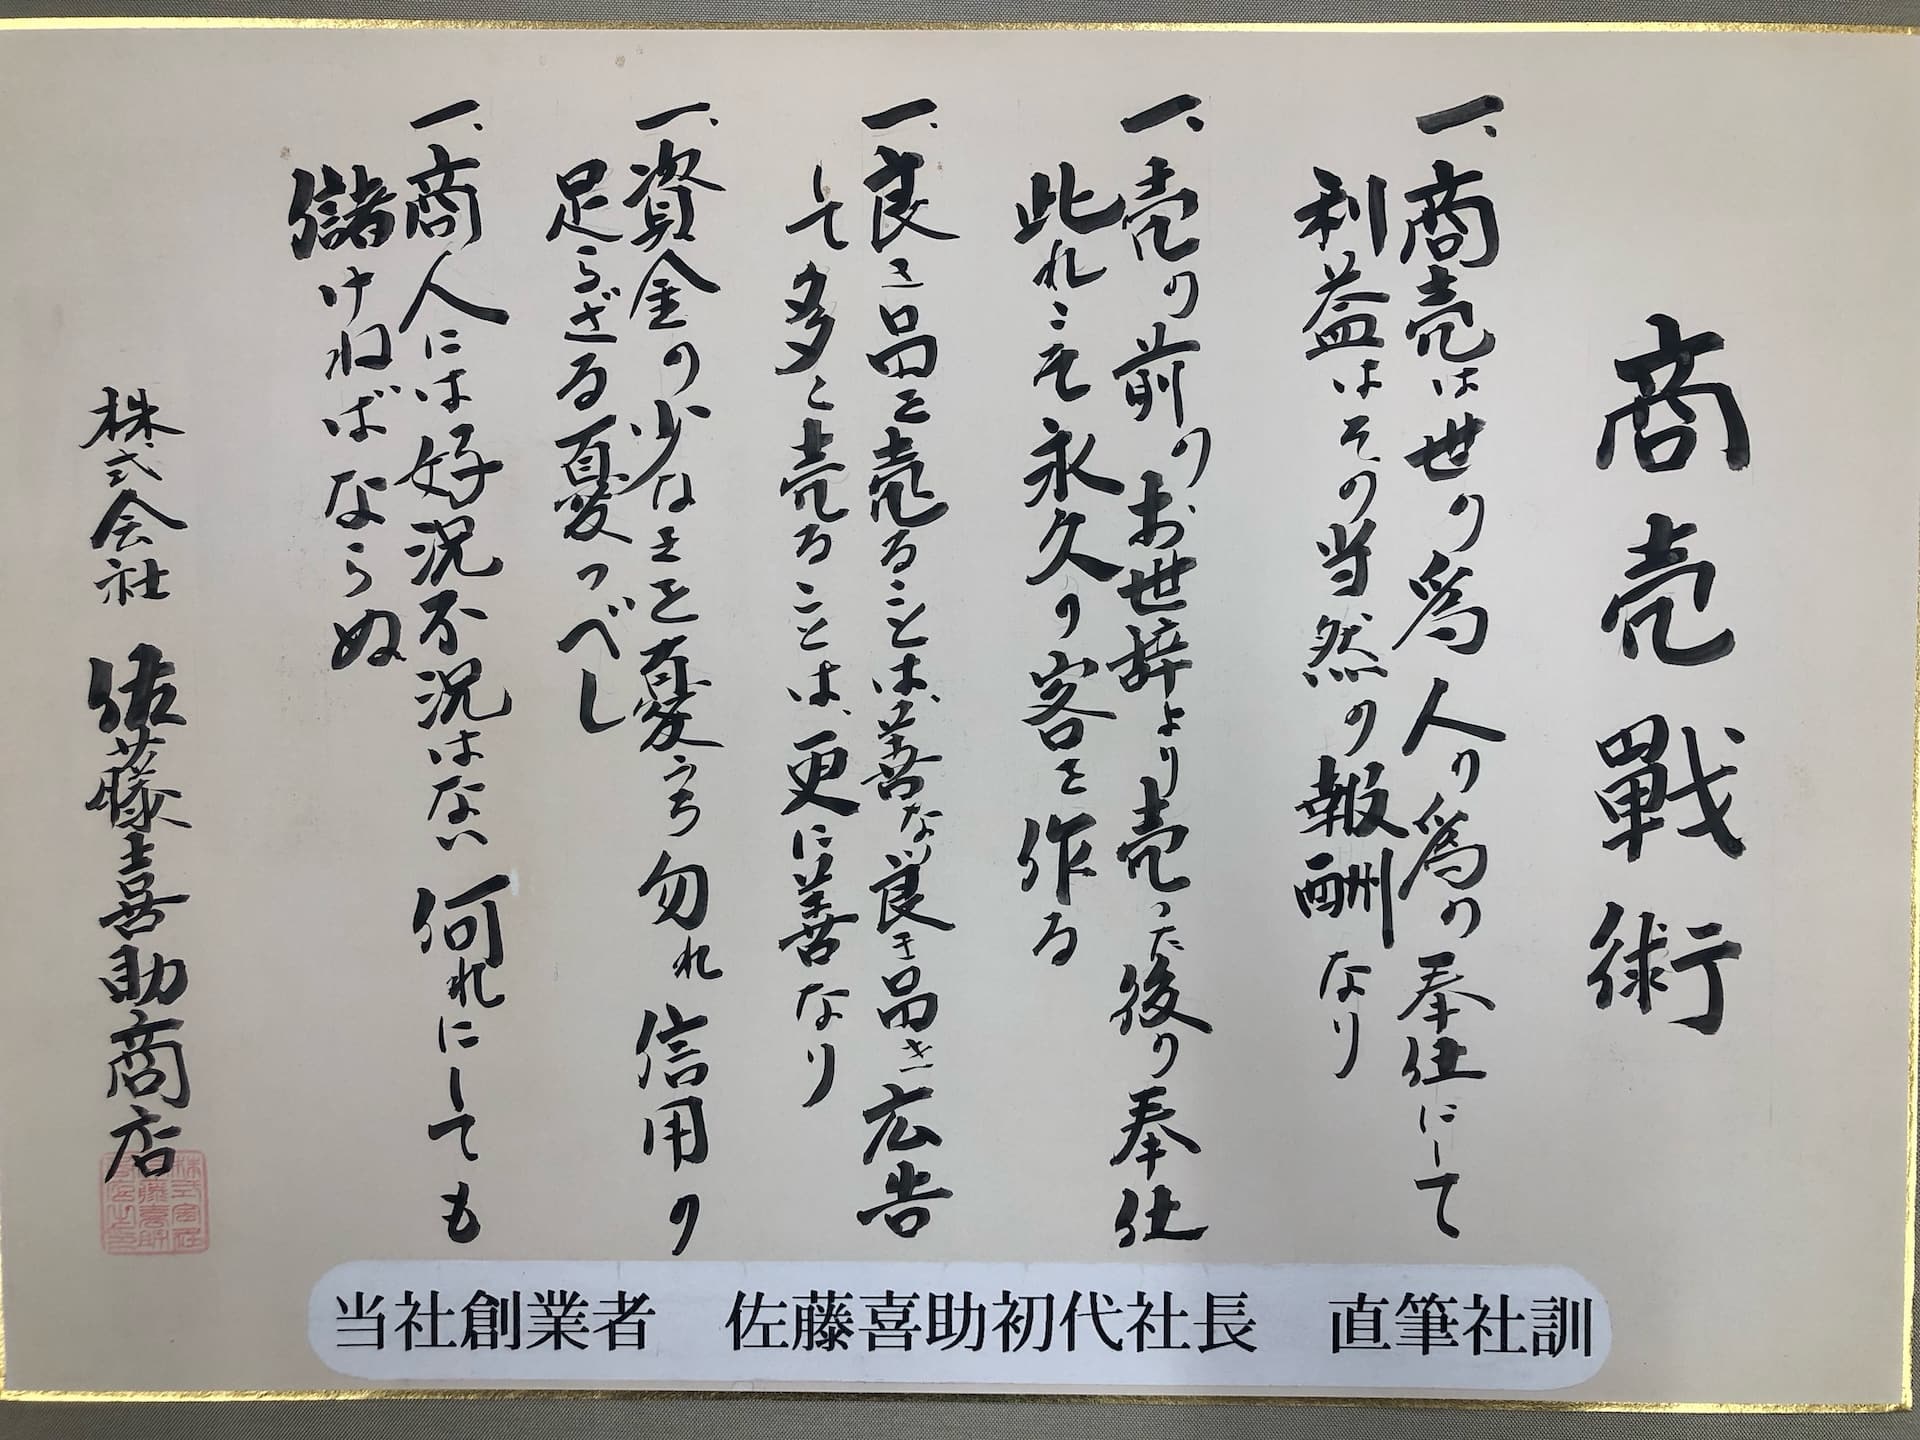 商売戰術
一、商売は世の為人の為の奉仕にして
利益はその当然の報酬なり
一、売の前のお世辞より売った後の奉仕
此れこそ永久の客を作る
一、良き品を売ることは、善なり良き品を広告
して多く売ることは、更に善なり
一、資金の少なきを憂うる勿れ信用の
足らざる憂うべし
一、商人には好況不況はない何れにしても
儲けねばならぬ
株式会社 佐藤喜助商店
当社創業者 佐藤喜助初代社長 直筆社訓